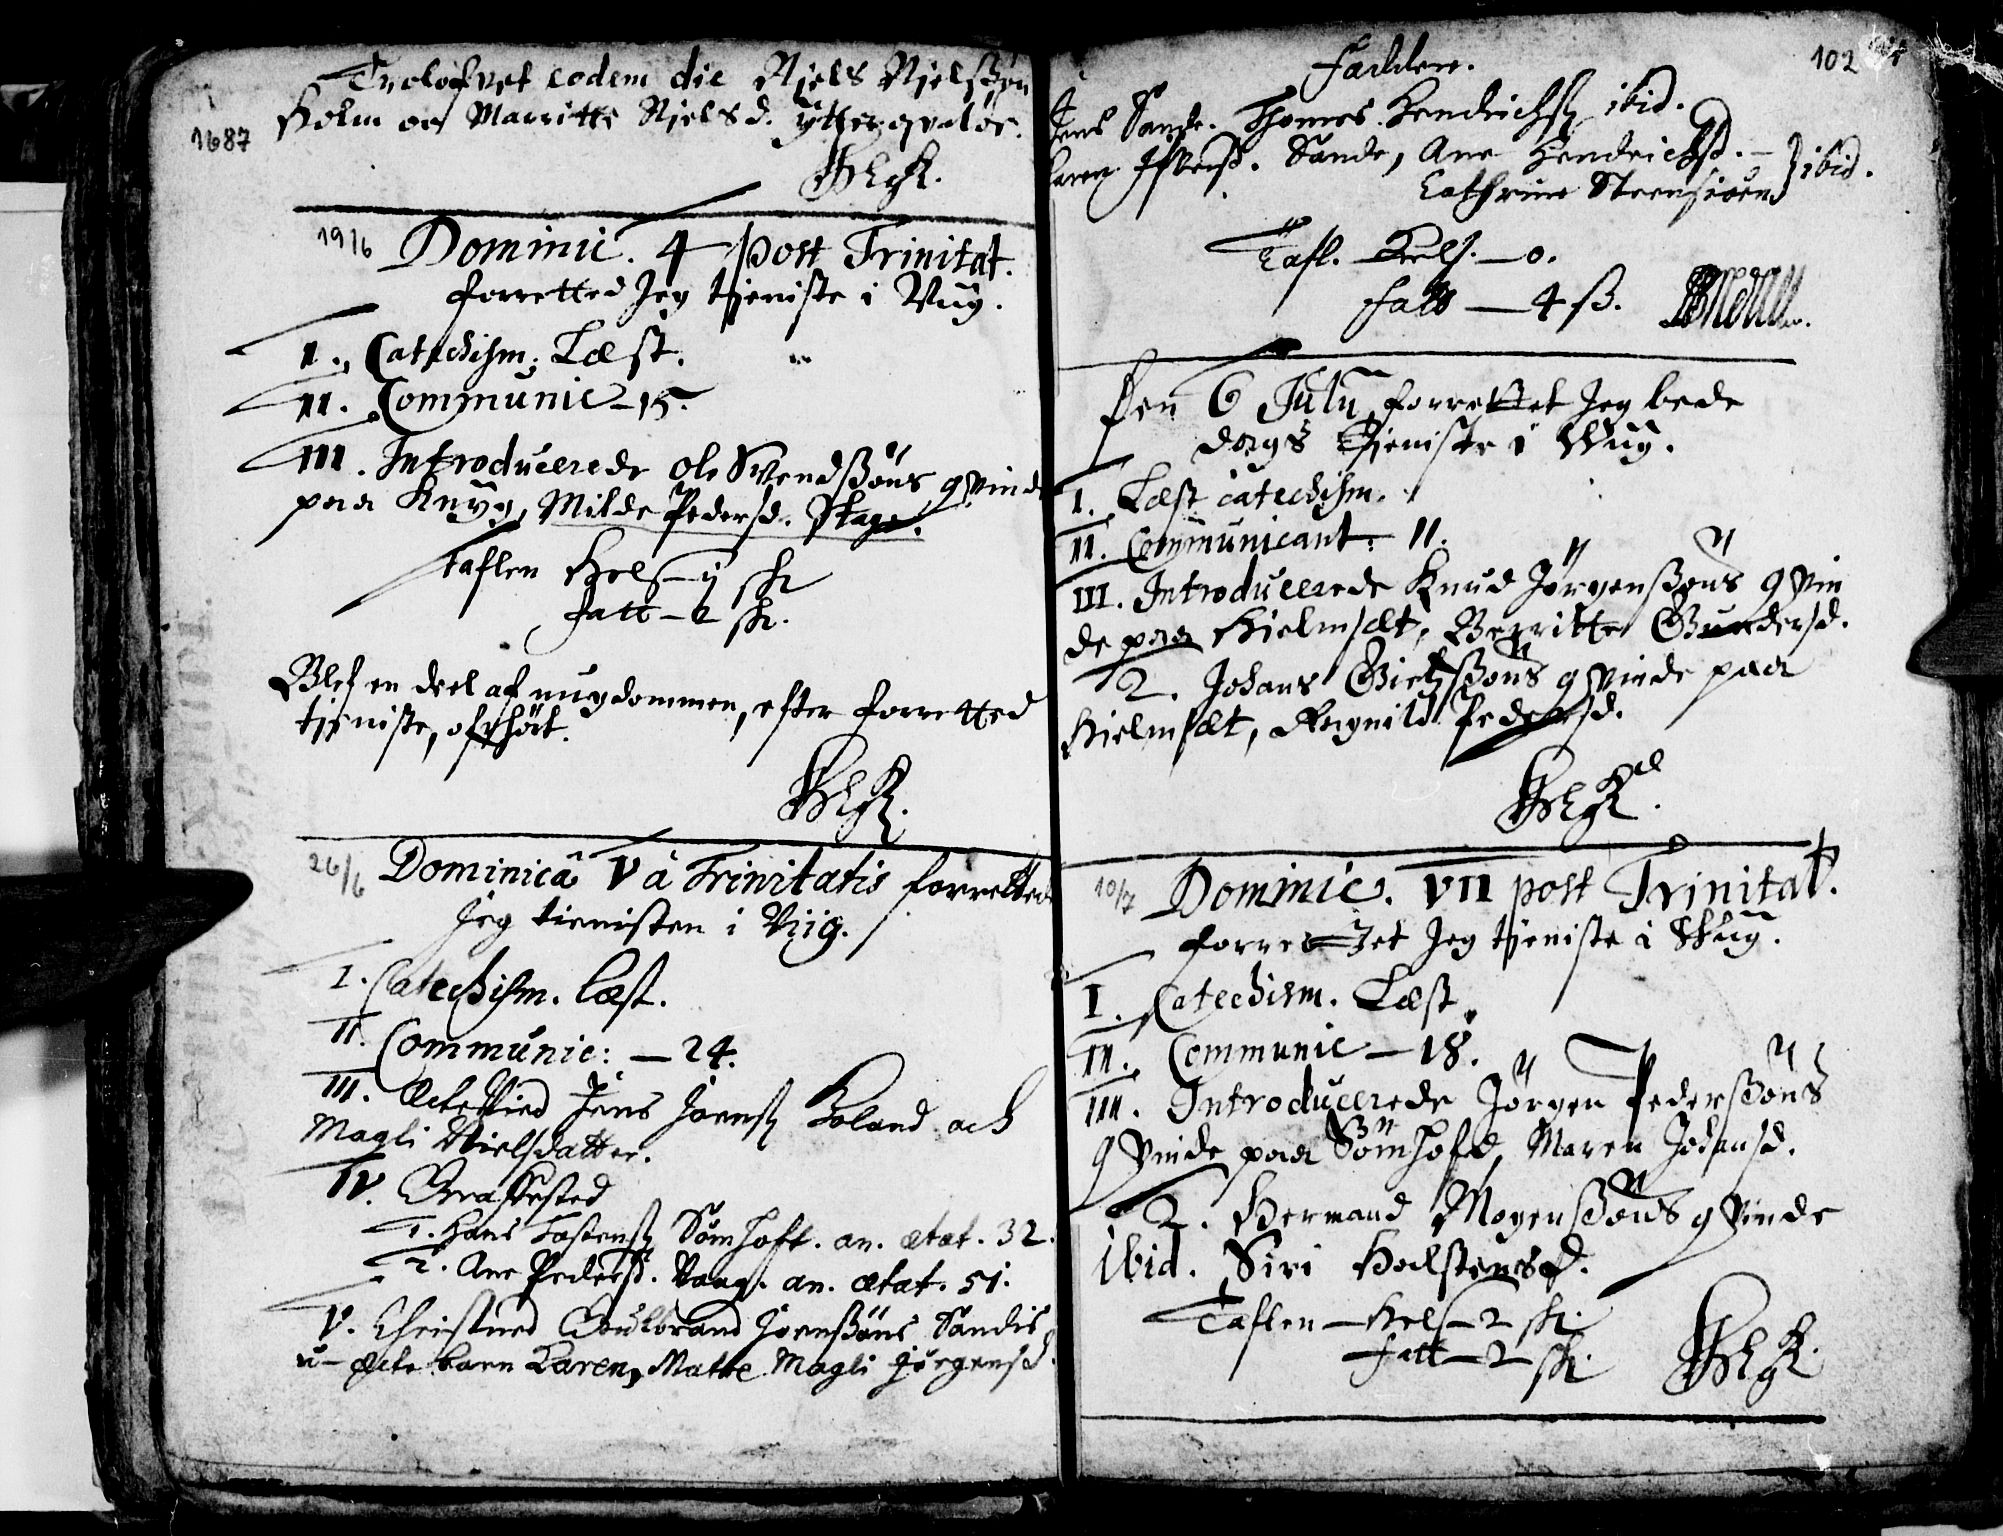 Troloffvet eodem die Niels Nielsøn
1687
Holm och Marritte Nielsd.
19/6 Dominic. 4 post Trinitat.
forretted Jeg tieniste i Viig.
I. Catechism. Læst.
II. Communic - 15.
III. Introducerede Ole Svendsøns qvinde
paa Knyg, Milde Pedersd. Skage.
taflen Hels - ij sk
fatt - 2 sk.
Blef en deel af ungdommen, efter forretted
tieniste, ofverhört.
26/6 Dominica V à Trinitatis forretted
Jeg tienisten i Viig.
I. Catechism. læst.
II. Communic: - 24.
III. Ectevied Jens Joens. Foland och
Magli Nielsdatter.
IV. Graffested
1. Hans Sømhoft. an. ætat. 32.
2. Ane Pedersd. Vaag. an. ætat. 51.
V. Christned Gulbrand Joensøns Sandis
u-ecte barn Karen, Matre Magli Jørgensd.
102
Faddere.
Jens Sande. Thomes Hendrichs. ibid.
Karen Sande, Ane Hendrichsd. - } ibid.
Cathrine
Tafl. Hels. - 0.
Fatt - 4 ß.
Den 6 Julij forrettet Jeg bede
dags Tieniste i Viig.
I. Læst catechism.
II. Communicant: 11.
III. Introducerede Knud Jørgensøns qvin
de paa Hielmsæt, Berritte Gundersd.
2. Johans qvinde paa
Hielmsæt, Ragnild Pedersd.
10/7 Dominic. VII post Trinitat.
forrettet Jeg tieniste i Viig.
I. Catechism. Læst.
II. Communic - 18.
III. Introducerede Jörgen Pedersöns
qvinde paa Sömhofd, Maren Johansd.
2. Hermand Mogensøns qvinde
ibid. Siri Holstensd.
Taflen - Hels - 2 sk.
Fatt - 2 sk.